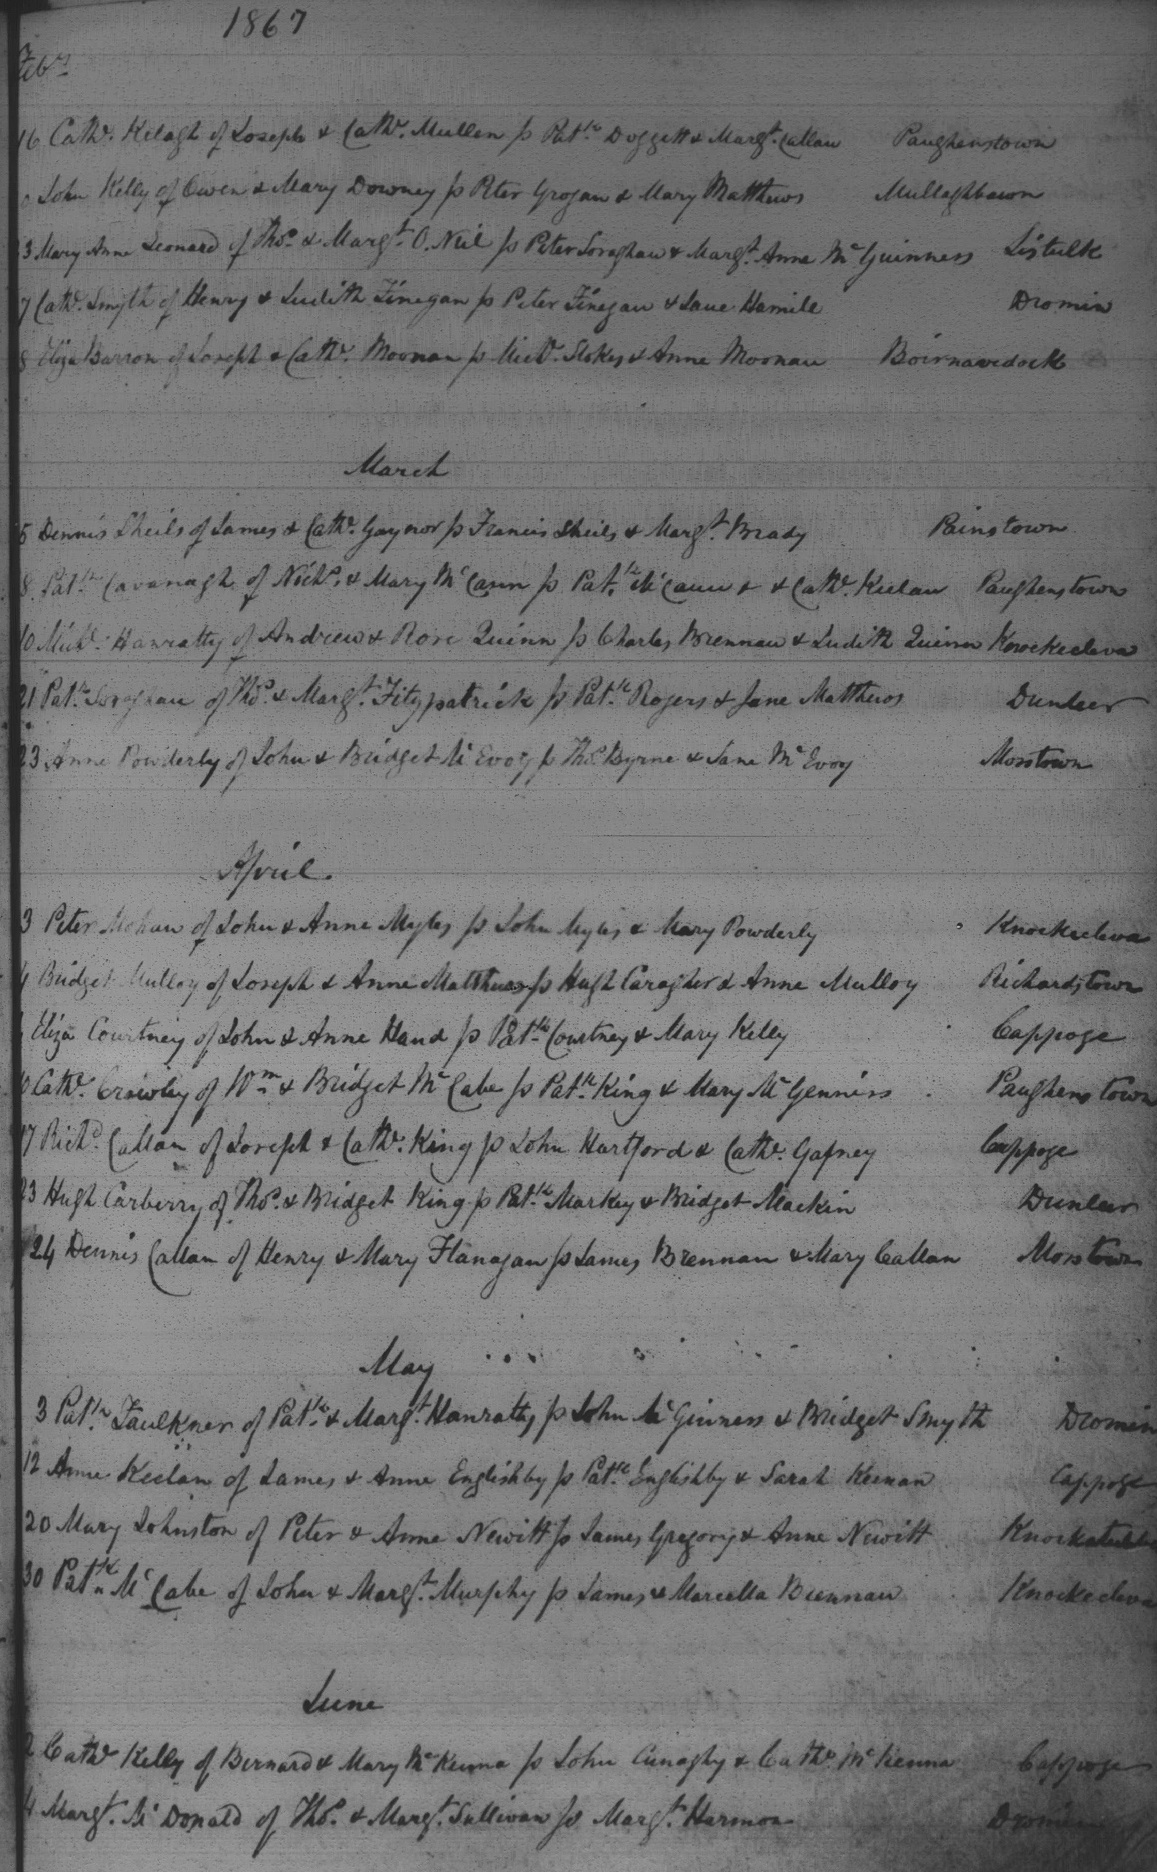 1867
Feby
16 Cathe. Kelagh of Joseph & Cathe. Mullen ps Patk. Doggett & Margt. Callan Paughenstown
John Kelly of Owen & Mary Downey ps Peter Grogan & Mary Matthews Mullaghbawn
3 Mary Anne Leonard of Thos. & Margt. O. Neil ps Peter Soraghan & Margt. Anne McGuinness Listulk
7 Cathe. Smyth of Henry & Judith Finegan ps Peter Finegan & Jane Hamill Dromin
8 Eliza Barron of Joseph & Cathe. Moonan ps Stokes & Anne Moonan
March
5 Dennis Sheils of James & Cathe. Gaynor ps Francis Sheils & Margt. Brady Painstown
8 Patk. Cavanagh of Nichs. & Mary McCann ps Patk. McCann & & Cathe. Keelan Paughenstown
10 Michl. Hanratty of Andrew & Rose Quinn ps Charles Brennan & Judith Quinn Knockcleva
21 Patk. Soraghan of Thos. & Margt. Fitzpatrick ps Patk. Rogers & Jane Matthews Dunleer
23 Anne Powderly of John & Bridget McEvoy ps Thos. Byrne & Jane McEvoy Mosstown
April
3 Peter Mohan of John & Anne Myles ps John Myles & Mary Powderly Knockcleva
4 Bridget Mulloy of Joseph & Anne Matthews ps Hugh Caragher & Anne Mulloy Richardstown
Eliza Courtney of John & Anne Hand ps Patk. Courtney & Mary Kelly Cappoge
10 Cathe. Crawley of Wm & Bridget McCabe ps Patk. King & Mary McGenniss Paughenstown
17 Richd. Callan of Joseph & Cathe. King ps John Hartford & Cathe. Gafney Cappoge
23 Hugh Carberry of Thos. & Bridget King ps Patk. Markey & Bridget Mackin Dunleer
24 Dennis Callan of Henry & Mary Flanagan ps James Brennan & Mary Callan Mosstown
May
3 Patk. Faulkner of Patk. & Margt. Hanratty ps John McGinness & Bridget Smyth Dromin
12 Anne Keelan of James & Anne Englishby ps Patk. Englishby & Sarah Keenan Cappoge
20 Mary Johnston of Peter & Anne Newitt ps James Gregory & Anne Newitt
30 Patk. McCabe of John & Margt. Murphy ps James & Marcella Brennan Knockcleva
June
2 Cathe. Kelly of Bernard & Mary McKenna ps John & Cathe. McKenna Cappoge
4 Margt. McDonald of Thos. & Margt. Sullivan ps Margt. Harmon Dromin